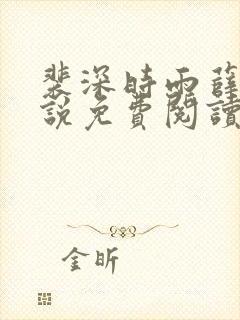 裴深時雨薛
說免費閱讀
金昕